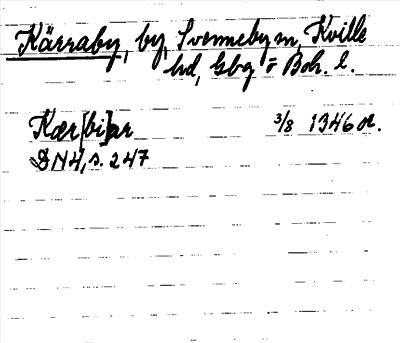 Kärraby, by, Svenneby sn, Kville
hd, Gbg o Boh. l.
Kær[bi]ar 3/8 1346 or.
DN4, s. 247